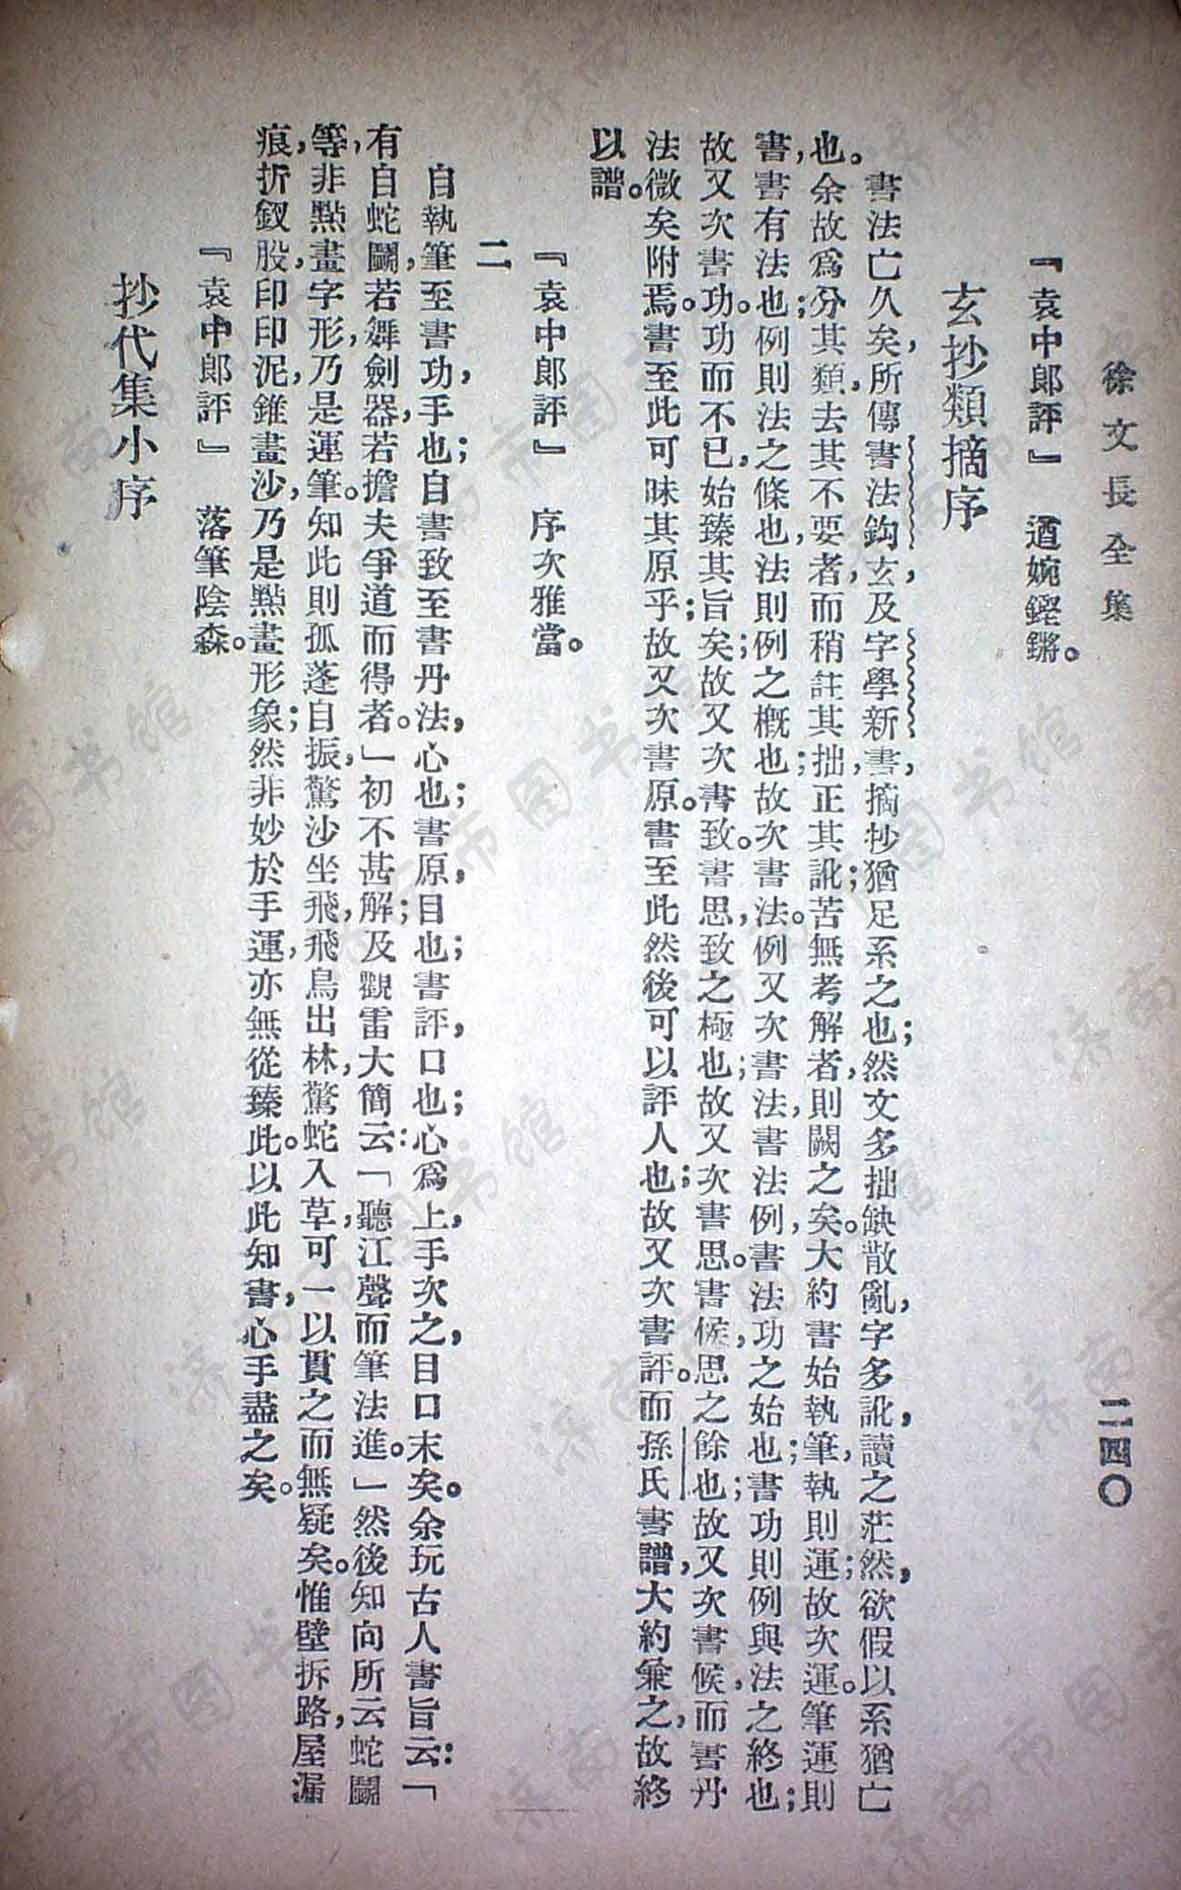 徐文長全集
二四〇
『袁中郎評』 遒婉鏗鏘。
玄抄類摘序
書法亡久矣，所傳書法鈎玄，及字學新書，摘抄猶足系之也；然文多拙缺散亂，字多訛，讀之茫然，欲假以系猶亡
也。余故爲分其類，去其不要者，而稍註其拙，正其訛；苦無考解者，則闕之矣。大約書始執筆，執則運；故次運筆。運則
書，書有法也；例則法之條也，法則例之槪也；故次書法例，又次書法。書法例，書法功之始也；書功則例與法之終也；
故又次書功。功而不已，始臻其旨矣；故又次書致。書思，致之極也；故又次書思。書候，思之餘也；故又次書候，而書丹
法微矣附焉。書至此，可昧其原乎；故又次書原。書至此，然後可以評人也；故又次書評。而孫氏書譜，大約兼之，故終
以譜。
『袁中郎評』 序次雅當。
二
自執筆至書功，手也；自書致至書丹法，心也；書原，目也；書評，口也；心爲上，手次之，目口末矣。余玩古人書旨云：「
有自蛇鬭，若舞劍器，若擔夫爭道而得者。」初不甚解；及觀雷大簡云：「聽江聲而筆法進。」然後知向所云蛇鬭
等，非點畫字形，乃是運筆。知此則孤蓬自振，驚沙坐飛，飛鳥出林，驚蛇入草，可一以貫之而無疑矣。惟壁拆路，屋漏
痕，折釵股，印印泥，錐畫沙，乃是點畫形象；然非妙於手運，亦無從臻此。以此知書，心手盡之矣。
『袁中郎評』 落筆陰森。
抄代集小序